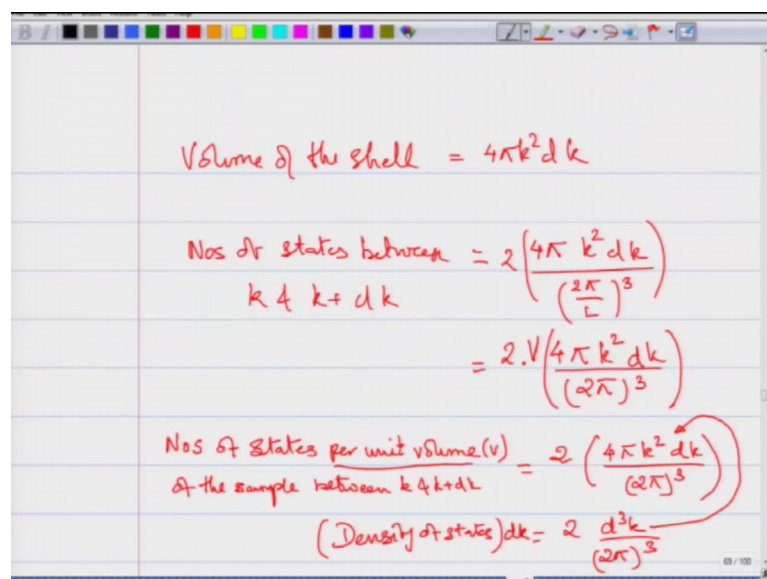 Volume of the shell = 4πk²dk
Nos of states between = 2(4π k²dk / (2π/L)³)
k & k+dk
= 2.V(4πk²dk / (2π)³)
Nos of states per unit volume (v) = 2 (4πk²dk / (2π)³)
of the sample between k & k+dk
(Density of states)dk = 2 d³k / (2π)³
69 / 100